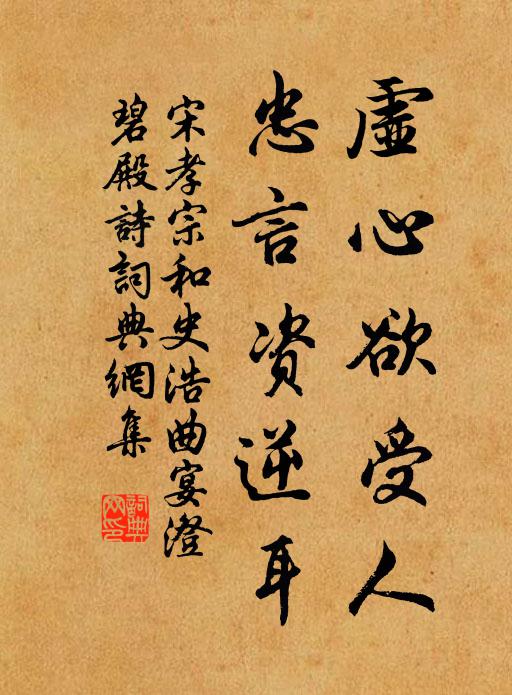 虛心欲受人
忠言资逆耳
宋孝宗和史浩曲宴澄
碧殿詩詞典網集
詞典
网印